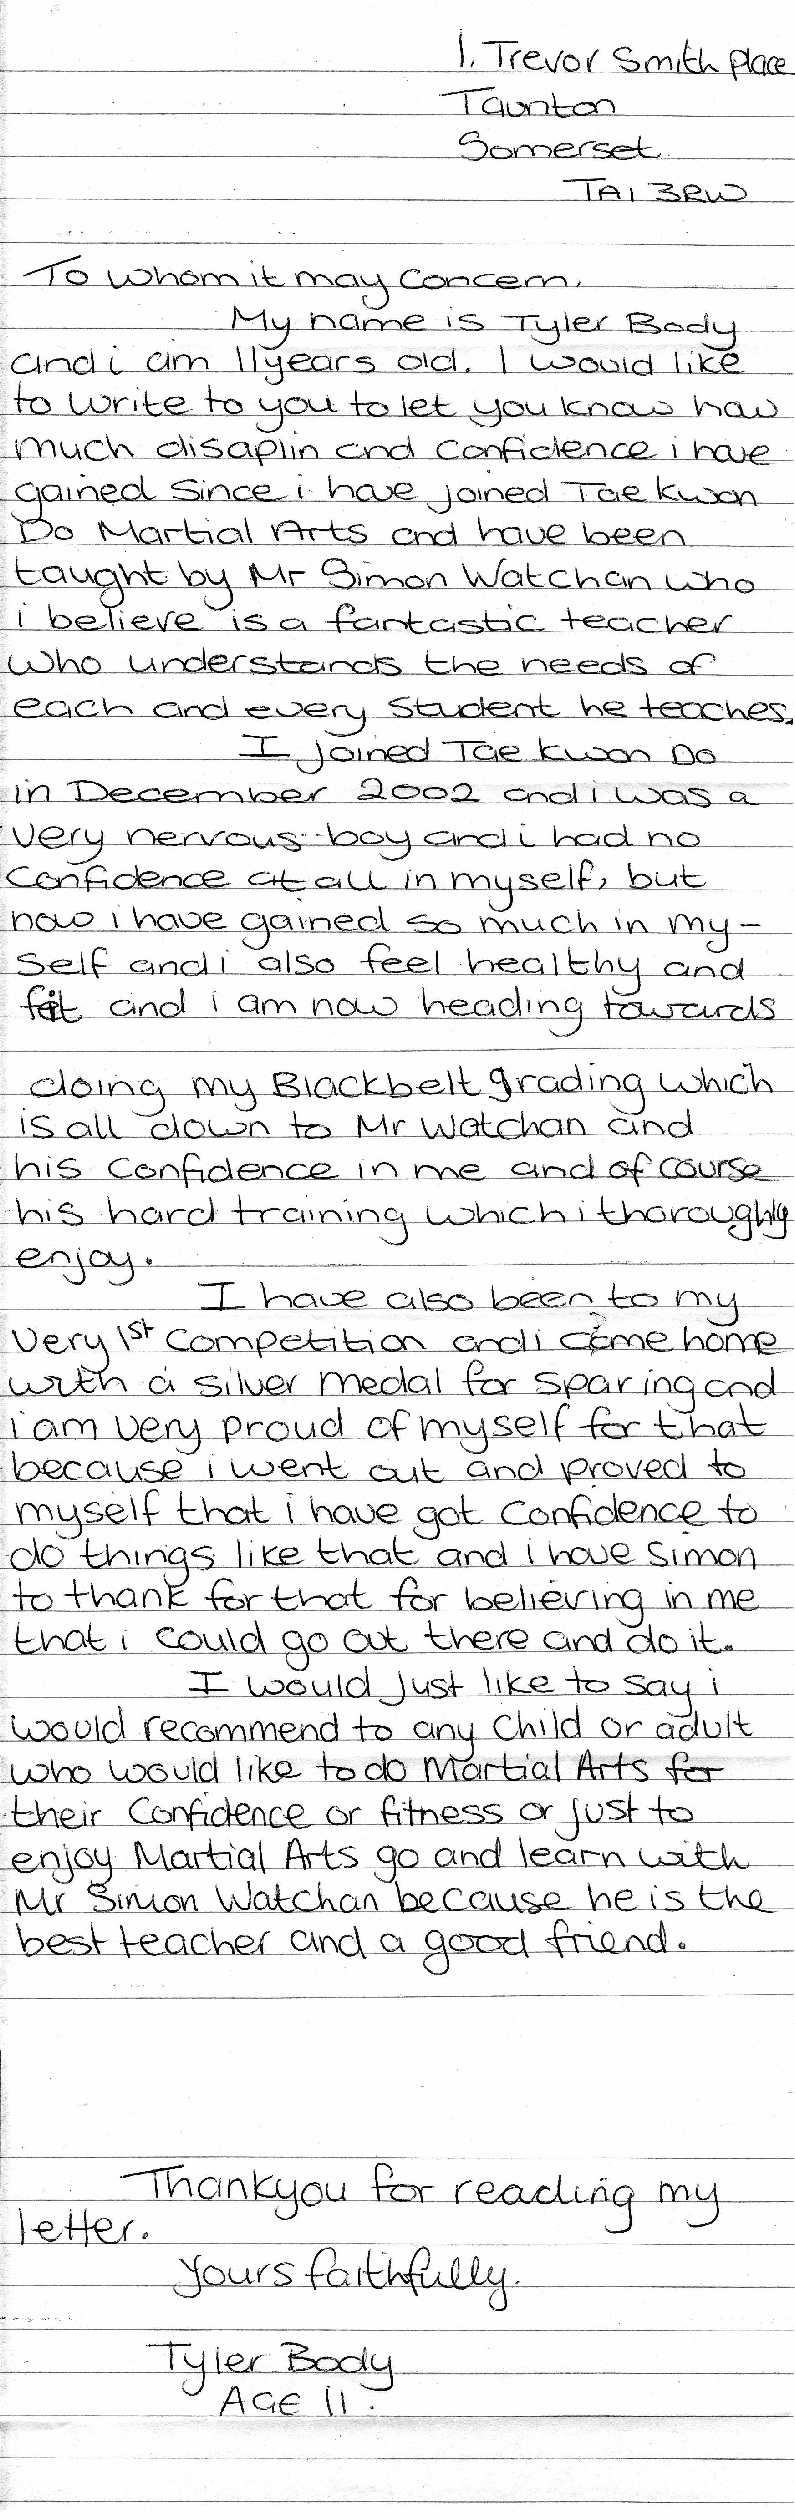 1. Trevor Smith Place
Taunton
Somerset
TA1 3RW
To whom it may concern,
My name is Tyler Body
and i am 11years old. I would like
to write to you to let you know how
much disaplin and confidence i have
gained since i have joined Tae Kwon
Do Martial Arts and have been
taught by Mr Simon Watchan who
i believe is a fantastic teacher
who understands the needs of
each and every student he teaches.
I joined Tae Kwon Do
in December 2002 and i was a
very nervous boy and i had no
confidence at all in myself, but
now i have gained so much in my-
self and i also feel healthy and
fit and i am now heading towards
doing my Blackbelt grading which
is all down to Mr Watchan and
his confidence in me and of course
his hard training which i thoroughly
enjoy.
I have also been to my
very 1st competition and i came home
with a silver medal for sparing and
i am very proud of myself for that
because i went out and proved to
myself that i have got confidence to
do things like that and i have Simon
to thank for that for believing in me
that i could go out there and do it.
I would just like to say i
would recommend to any child or adult
who would like to do Martial Arts for
their confidence or fitness or just to
enjoy Martial Arts go and learn with
Mr Simon Watchan because he is the
best teacher and a good friend.
Thankyou for reading my
letter.
yours faithfully.
Tyler Body
AGE 11.